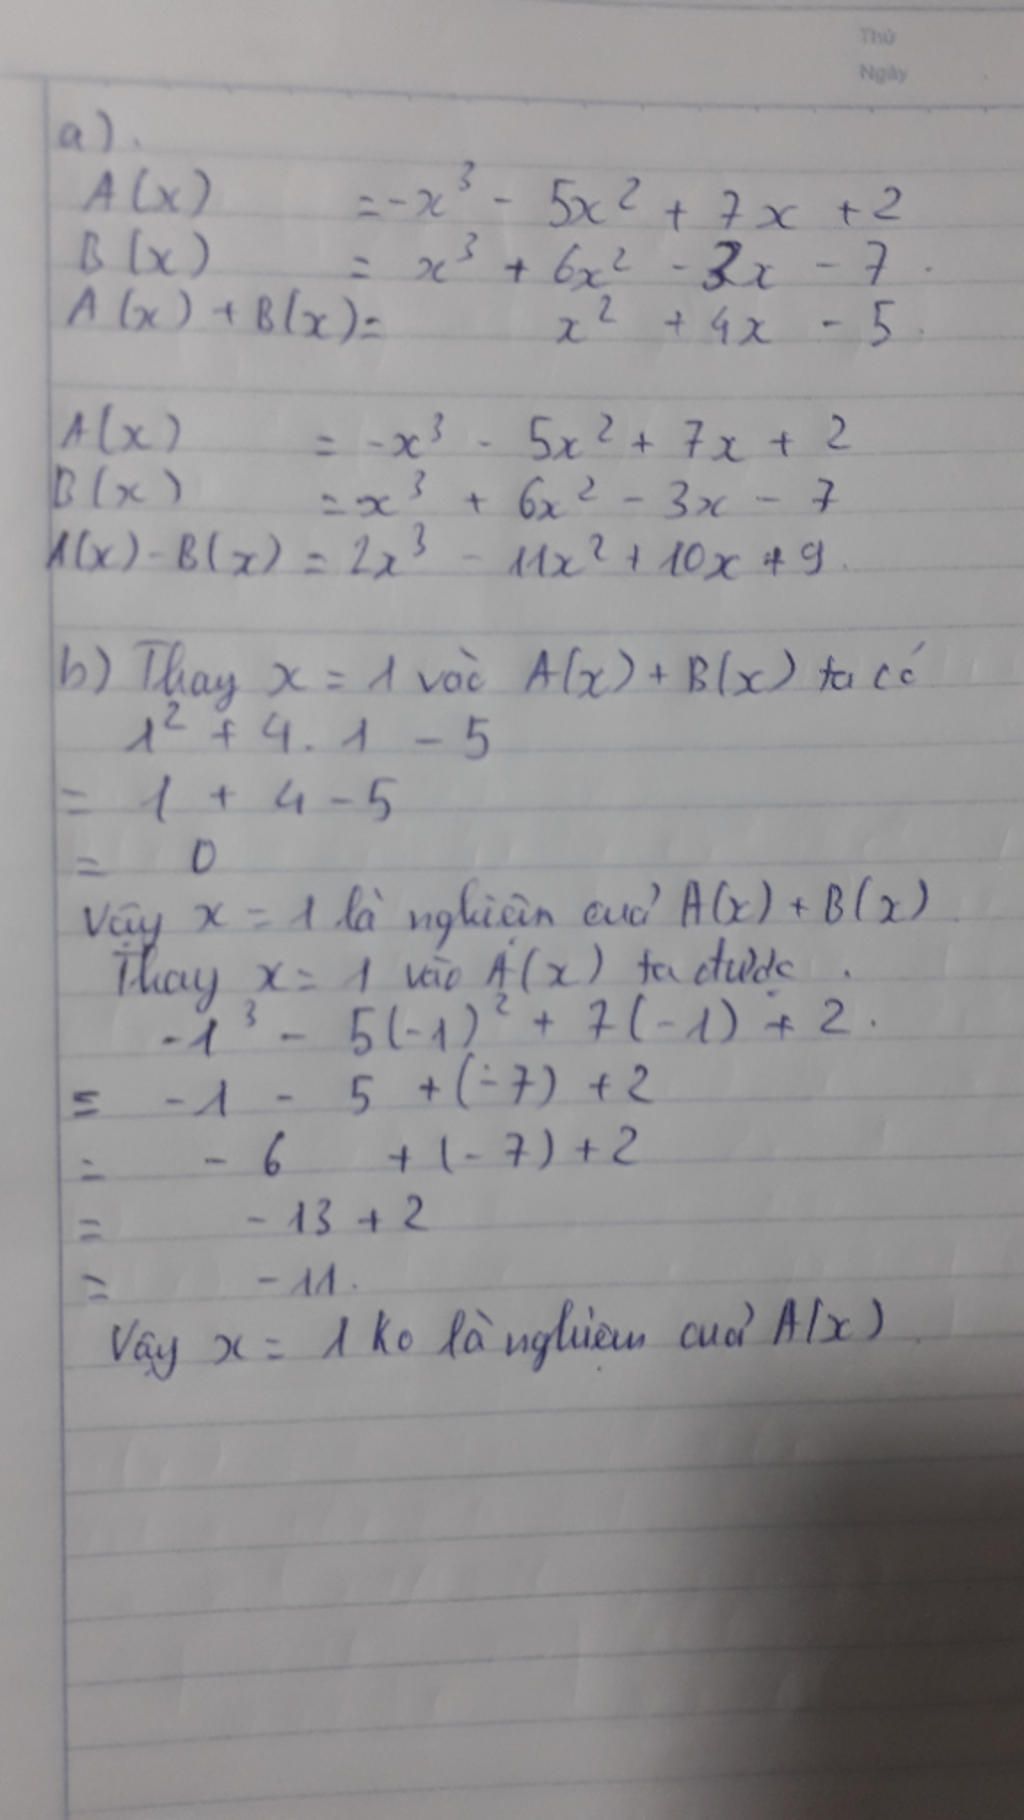 Thứ
Ngày
a).
A(x) = -x³ - 5x² + 7x + 2
B(x) = x³ + 6x² - 3x - 7.
A(x) + B(x) = x² + 4x - 5.
A(x) = -x³ - 5x² + 7x + 2
B(x) = x³ + 6x² - 3x - 7
A(x) - B(x) = 2x³ - 11x² + 10x + 9.
b) Thay x = 1 vào A(x) + B(x) ta có
1² + 4. 1 - 5
= 1 + 4 - 5
= 0
Vậy x = 1 là nghiệm cuả A(x) + B(x)
Thay x = 1 vào A(x) ta được.
-1³ - 5(-1)² + 7(-1) + 2.
= -1 - 5 + (-7) + 2
= - 6 + (-7) + 2
= -13 + 2
= -11.
Vậy x = 1 ko là nghiệm cuả A(x)